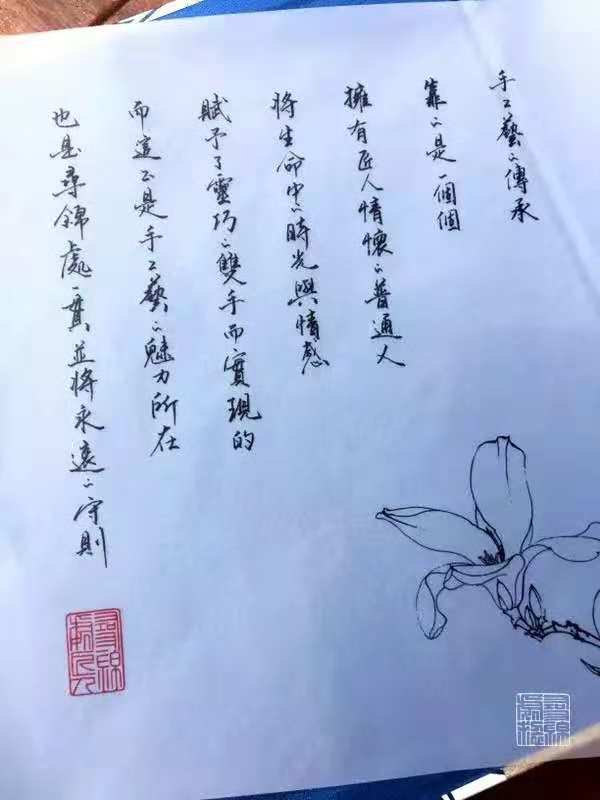 手工藝的傳承
靠的是一個個
擁有匠人情懷的普通人
將生命中的時光與情感
賦予了靈巧的雙手而實現的
而這正是手工藝的魅力所在
也是尋錦處一貫並將永遠的守則